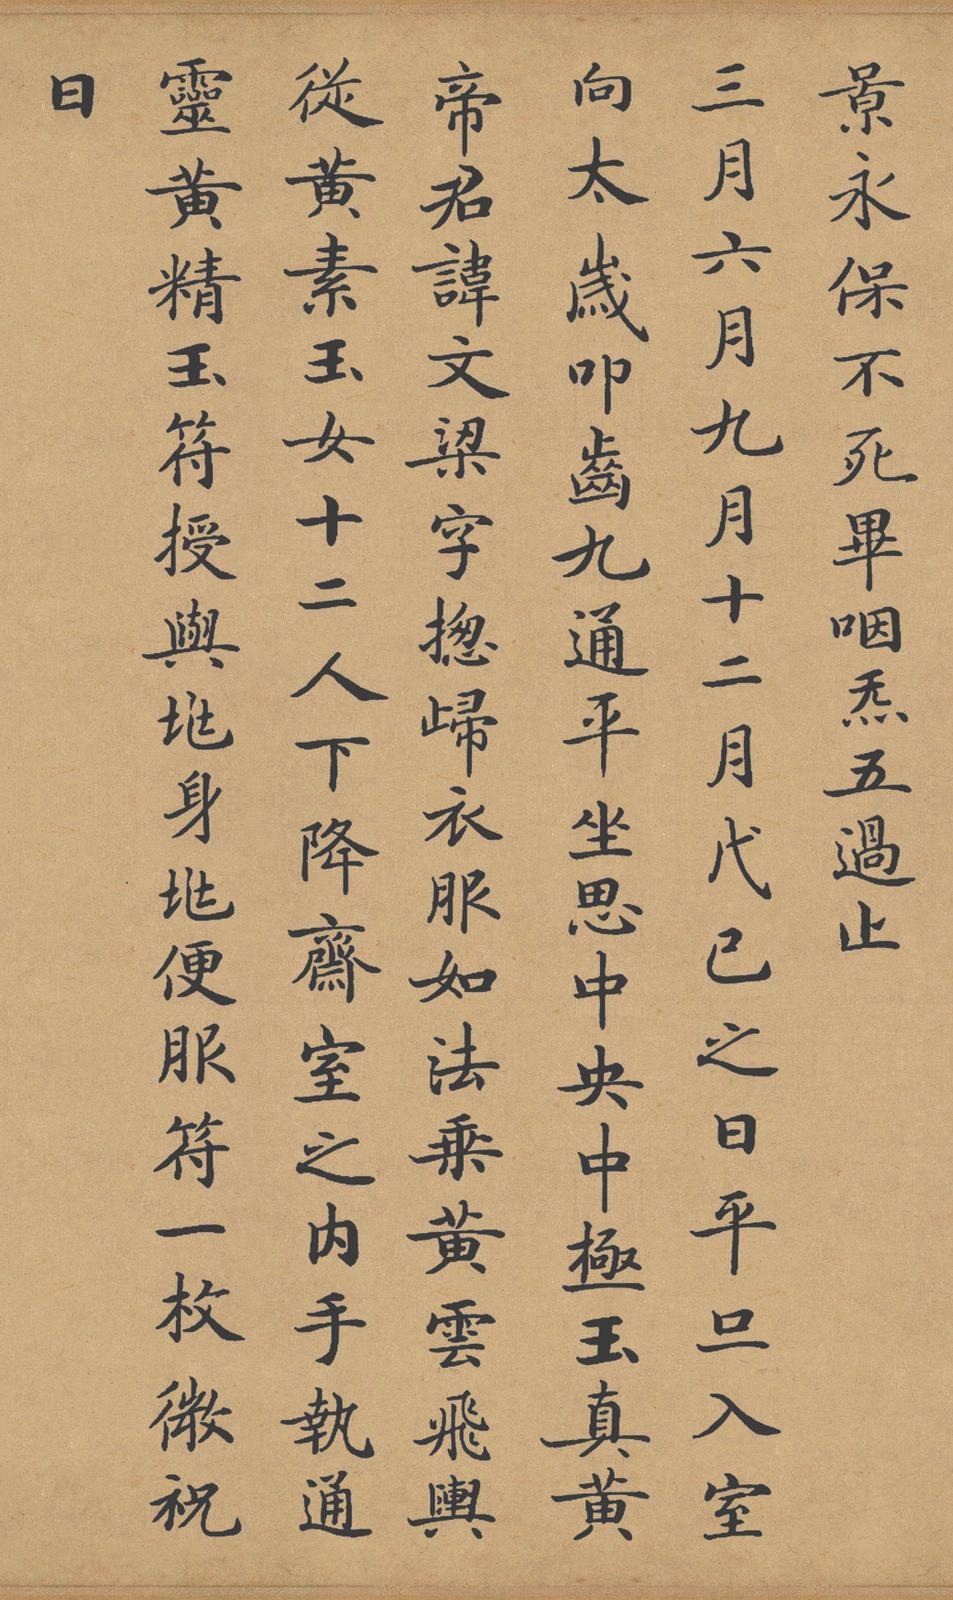 景永保不死畢咽炁五過止
三月六月九月十二月代巳之日平旦入室
向太歲叩齒九通平坐思中央中極玉真黃
帝君諱文梁字揔歸衣服如法乘黃雲飛輿
從黃素玉女十二人下降齋室之內手執通
靈黃精玉符授與兆身兆便服符一枚微祝
曰